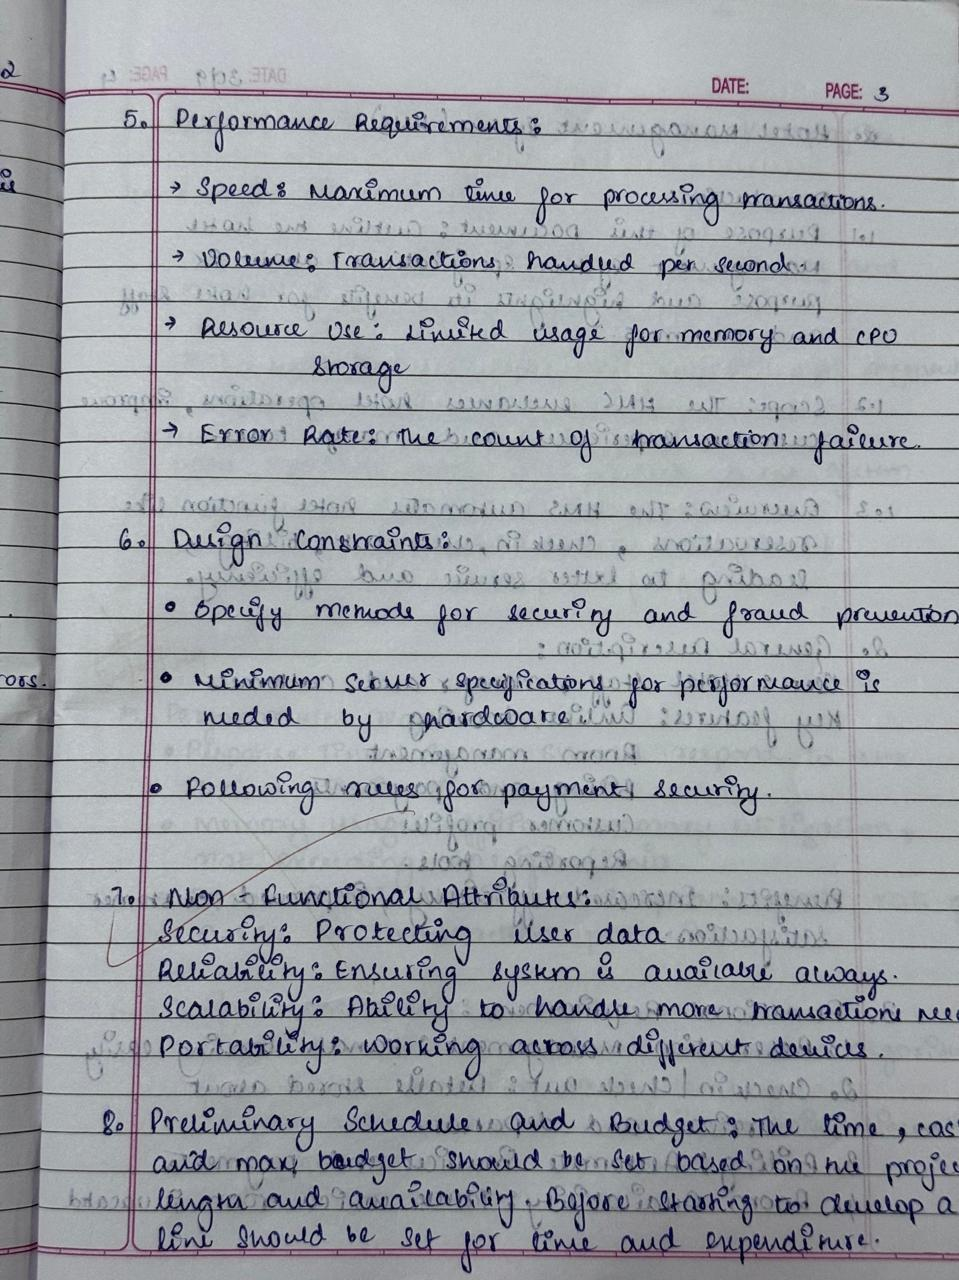 2
DATE:
PAGE: 3
5. Performance Requirements:
→ Speed: Maximum time for processing transactions.
→ Volume: Transactions handled per second
→ Resource Use: Limited usage for memory and CPU
storage
→ Error Rate: The count of transaction failure.
6. Design Constraints:
• Specify methods for security and fraud prevention
• Minimum server specifications for performance is
needed by hardware
• Following rules for payment security.
7. Non Functional Attributes:
Security: Protecting user data
Reliability: Ensuring system is available always.
Scalability: Ability to handle more transactions
Portability: Working across different devices.
8. Preliminary Schedule and Budget: The time,
and max budget should be set based on the
length and availability. Before starting to develop a
line should be set for time and expenditure.